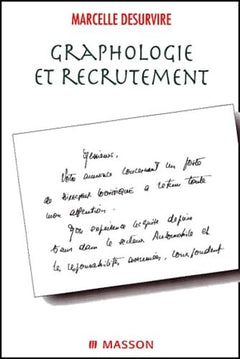 MARCELLE DESURVIRE
GRAPHOLOGIE
ET RECRUTEMENT
Messieurs,
Votre annonce concernant un poste
de DIRECTEUR LOGISTIQUE a retenu toute
mon attention.
Mon expérience acquise depuis
ans dans le secteur Automobile et
les responsabilités assumées, correspondent
MASSON